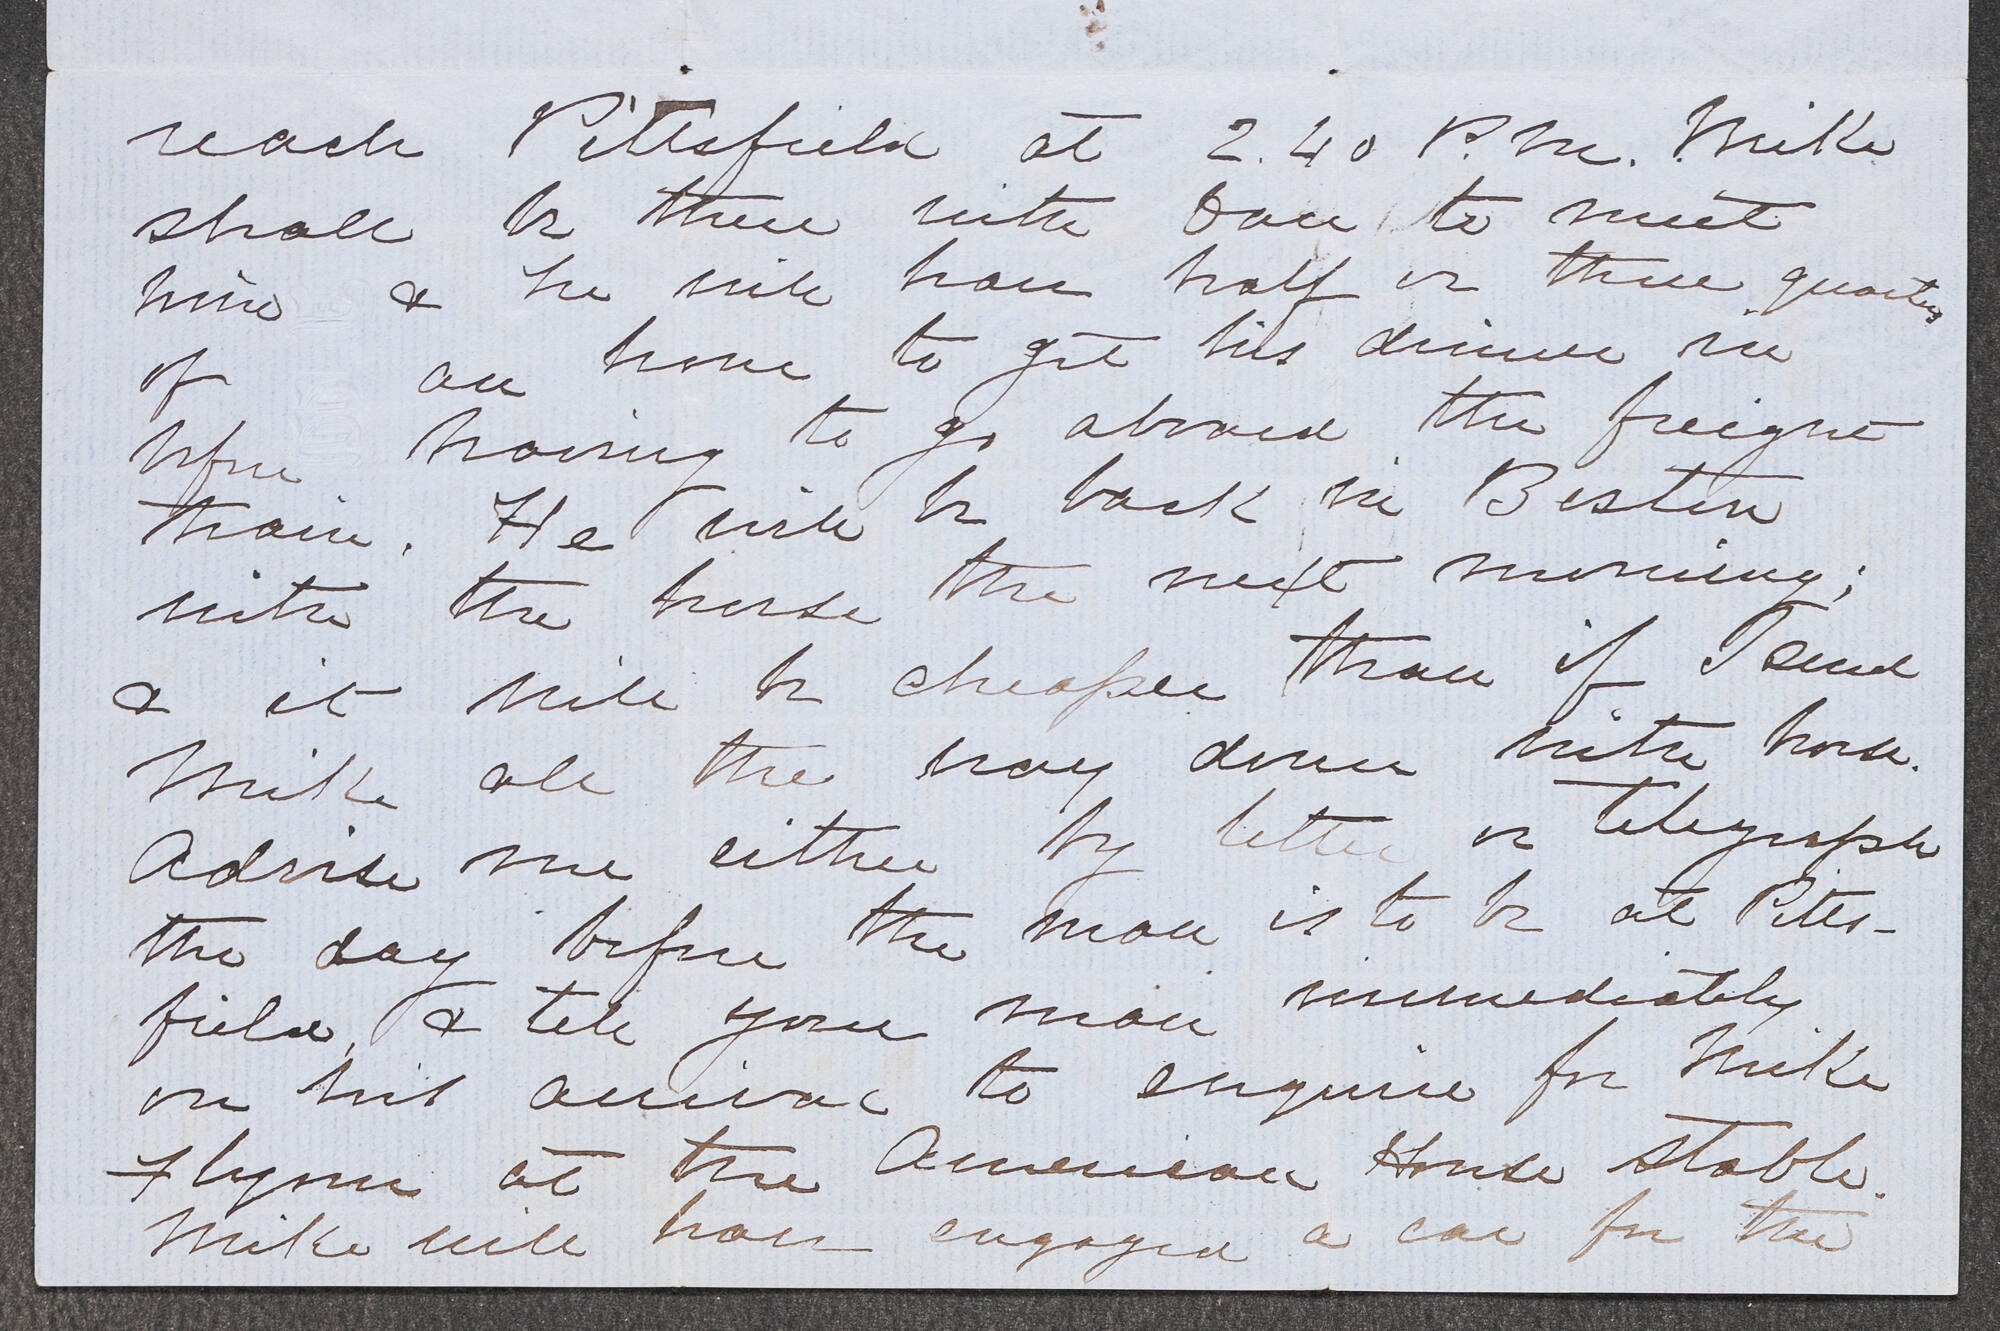 reach Pittsfield at 2.40 P.M. Mike
shall be there with to meet
him & he will have half or three quarters
of an hour to get his dinner in
before having to go aboard the freight
train. He will be back in Boston
with the horse the next morning;
& it will be cheaper than if I send
Mike all the way down with horse.
Advise me either by letter or telegraph
the day before the man is to be at Pitts-
field, & tell your man immediately
on his arrival to enquire for Mike
Flynn at the American House stable.
Mike will have engaged a car for the